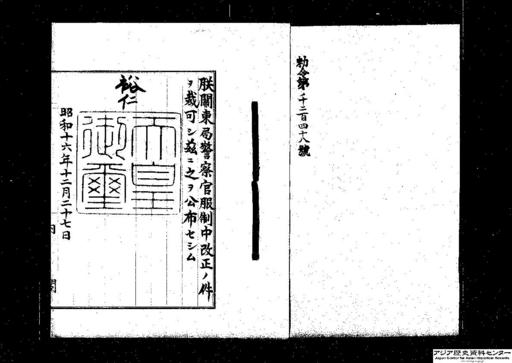 勅令第千二百四十八號
朕關東局警察官服制中改正ノ件
ヲ裁可シ茲ニ之ヲ公布セシム
裕仁
天皇
御璽
昭和十六年十二月二十七日
内閣
アジア歴史資料センター
Japan Center for Asian Historical Records